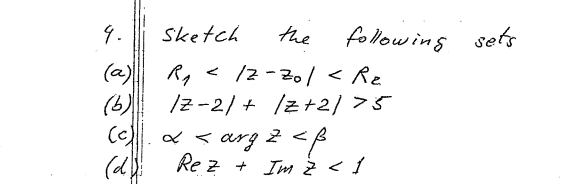 4. Sketch the following sets
(a) R₁ < |z-z₀| < R₂
(b) |z-2| + |z+2| > 5
(c) α < arg z < β
(d) Re z + Im z < 1